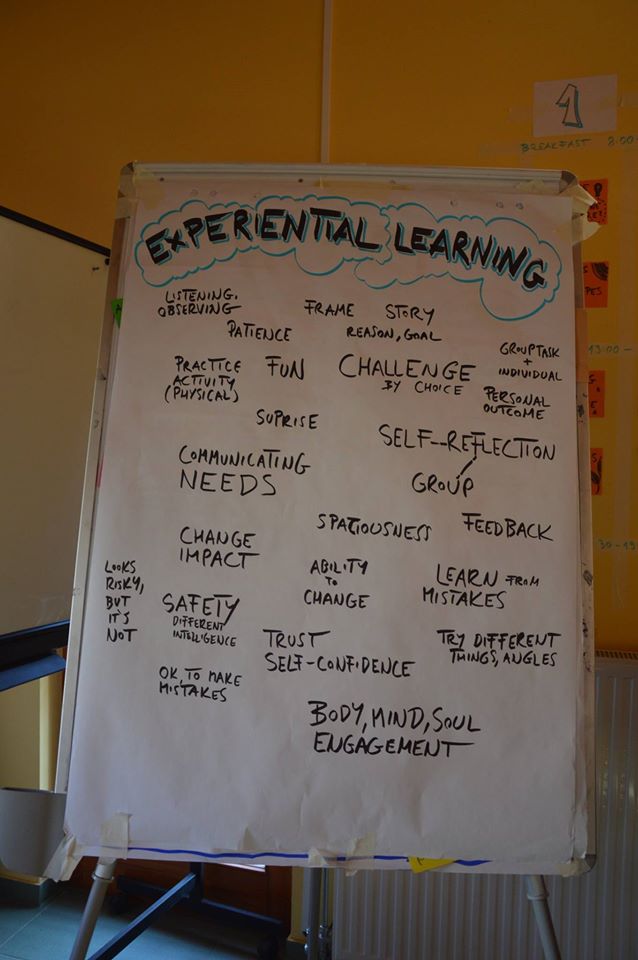 1
BREAKFAST 8:00
EXPERIENTIAL LEARNING
LISTENING,
OBSERVING
FRAME
STORY
REASON, GOAL
PATIENCE
GROUP TASK
+
INDIVIDUAL
PRACTICE
ACTIVITY
(PHYSICAL)
FUN
CHALLENGE
BY CHOICE
PERSONAL
OUTCOME
SUPRISE
SELF-REFLECTION
GROUP
COMMUNICATING
NEEDS
SPATIOUSNESS
FEEDBACK
CHANGE
IMPACT
ABILITY
TO
CHANGE
LEARN FROM
MISTAKES
LOOKS
RISKY,
BUT
IT'S
NOT
SAFETY
DIFFERENT
INTELLIGENCE
TRUST
SELF-CONFIDENCE
TRY DIFFERENT
THINGS, ANGLES
OK, TO MAKE
MISTAKES
BODY, MIND, SOUL
ENGAGEMENT
13:00